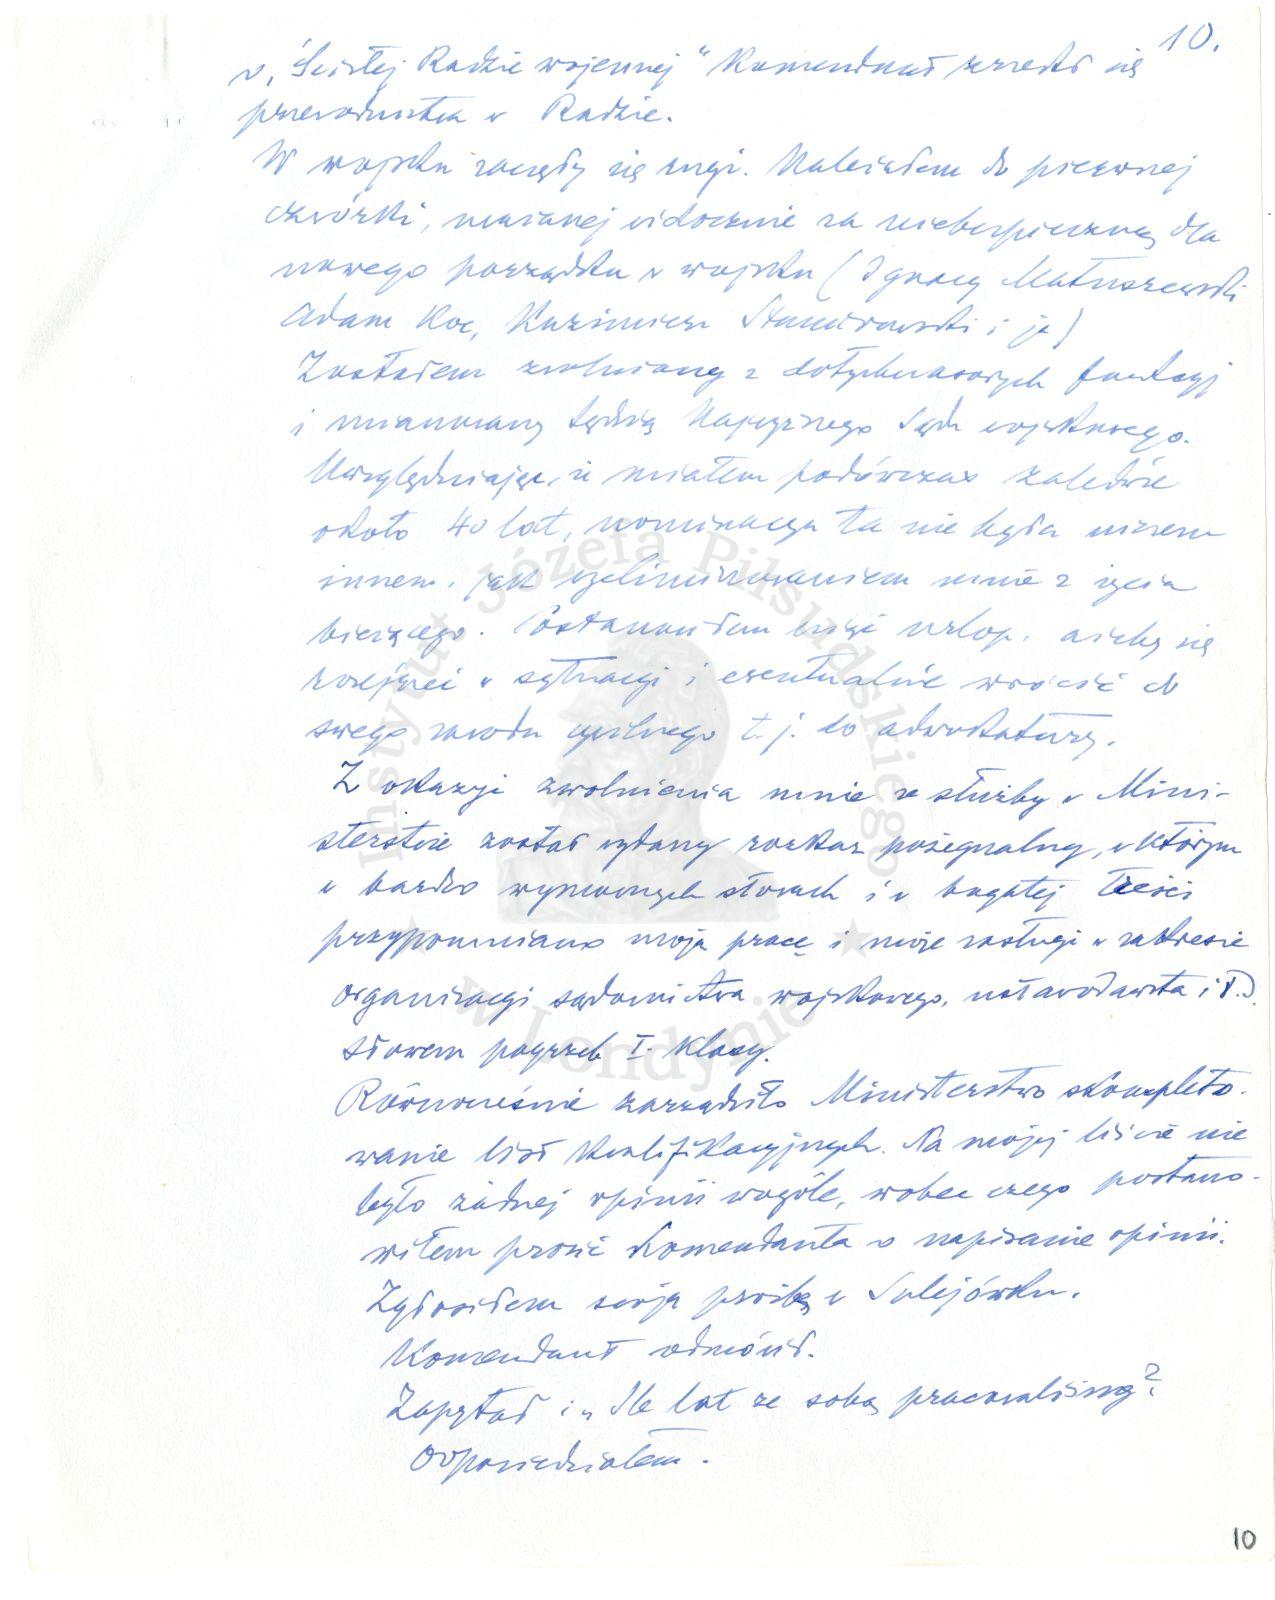 10.
w „Ścisłej Radzie wojennej" Komendant zrzekł się
przewodnictwa w Radzie.
W wojsku zaczęły się rugi. Należałem do pierwszej
czwórki, uważanej widocznie za niebezpieczną dla
nowego porządku w wojsku (Ignacy Matuszewski
Adam Koc, Kazimierz Stamirowski i ja)
Zostałem zwolniony z dotychczasowych funkcyj
i mianowany sędzią Najwyższego Sądu wojskowego.
Uwzględniając, iż miałem podówczas zaledwie
około 40 lat, nominacja ta nie była niczem
innem, jak wyeliminowaniem mnie z życia
bieżącego. Postanowiłem wziąć urlop, ażeby się
rozejrzeć w sytuacyi i ewentualnie wrócić do
swego zawodu cywilnego t.j. do adwokatury.
Z okazyi zwolnienia mnie ze służby w Mini-
sterstwie został wydany rozkaz pożegnalny, w którym
w bardzo wymownych słowach i w bogatej treści
przypomniano moją pracę i moje zasługi w zakresie
organizacyi sądownictwa wojskowego, ustawodawstwa i t.d.
słowem pogrzeb I. klasy.
Równocześnie zarządziło Ministerstwo skompleto-
wanie list kwalifikacyjnych. Na mojej liście nie
było żadnej opinii wogóle, wobec czego postano-
wiłem prosić Komendanta o napisanie opinii.
Zgłosiłem swoją prośbę w Sulejówku.
Komendant odmówił.
Zapytał: „Ile lat ze sobą pracowaliśmy?
Odpowiedziałem.
Instytut Józefa Piłsudskiego
w Londynie
10